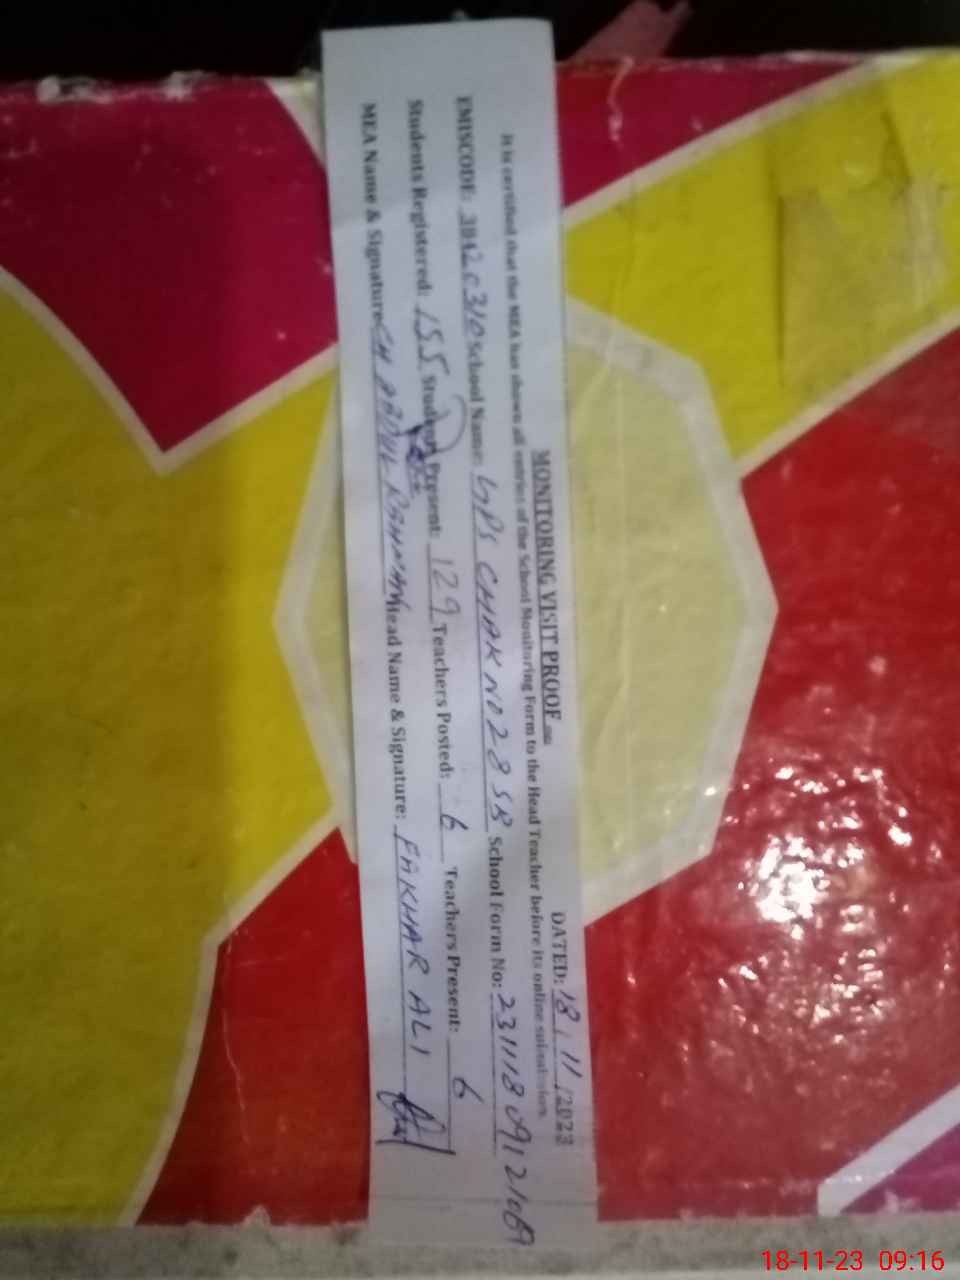 MONITORING VISIT PROOF
DATED: 18/11/2023
It is certified that the MEA has shown all entries of the School Monitoring Form to the Head Teacher before its online submission.
EMISCODE: 38420310 School Name: GPS CHAK NO 28 SB School Form No: 231118091210
Students Registered: 155 Student Present: 129 Teachers Posted: 6 Teachers Present: 6
MEA Name & Signature CH ABDUL RAHMAN Head Name & Signature: FAKHAR ALI
18-11-23 09:16